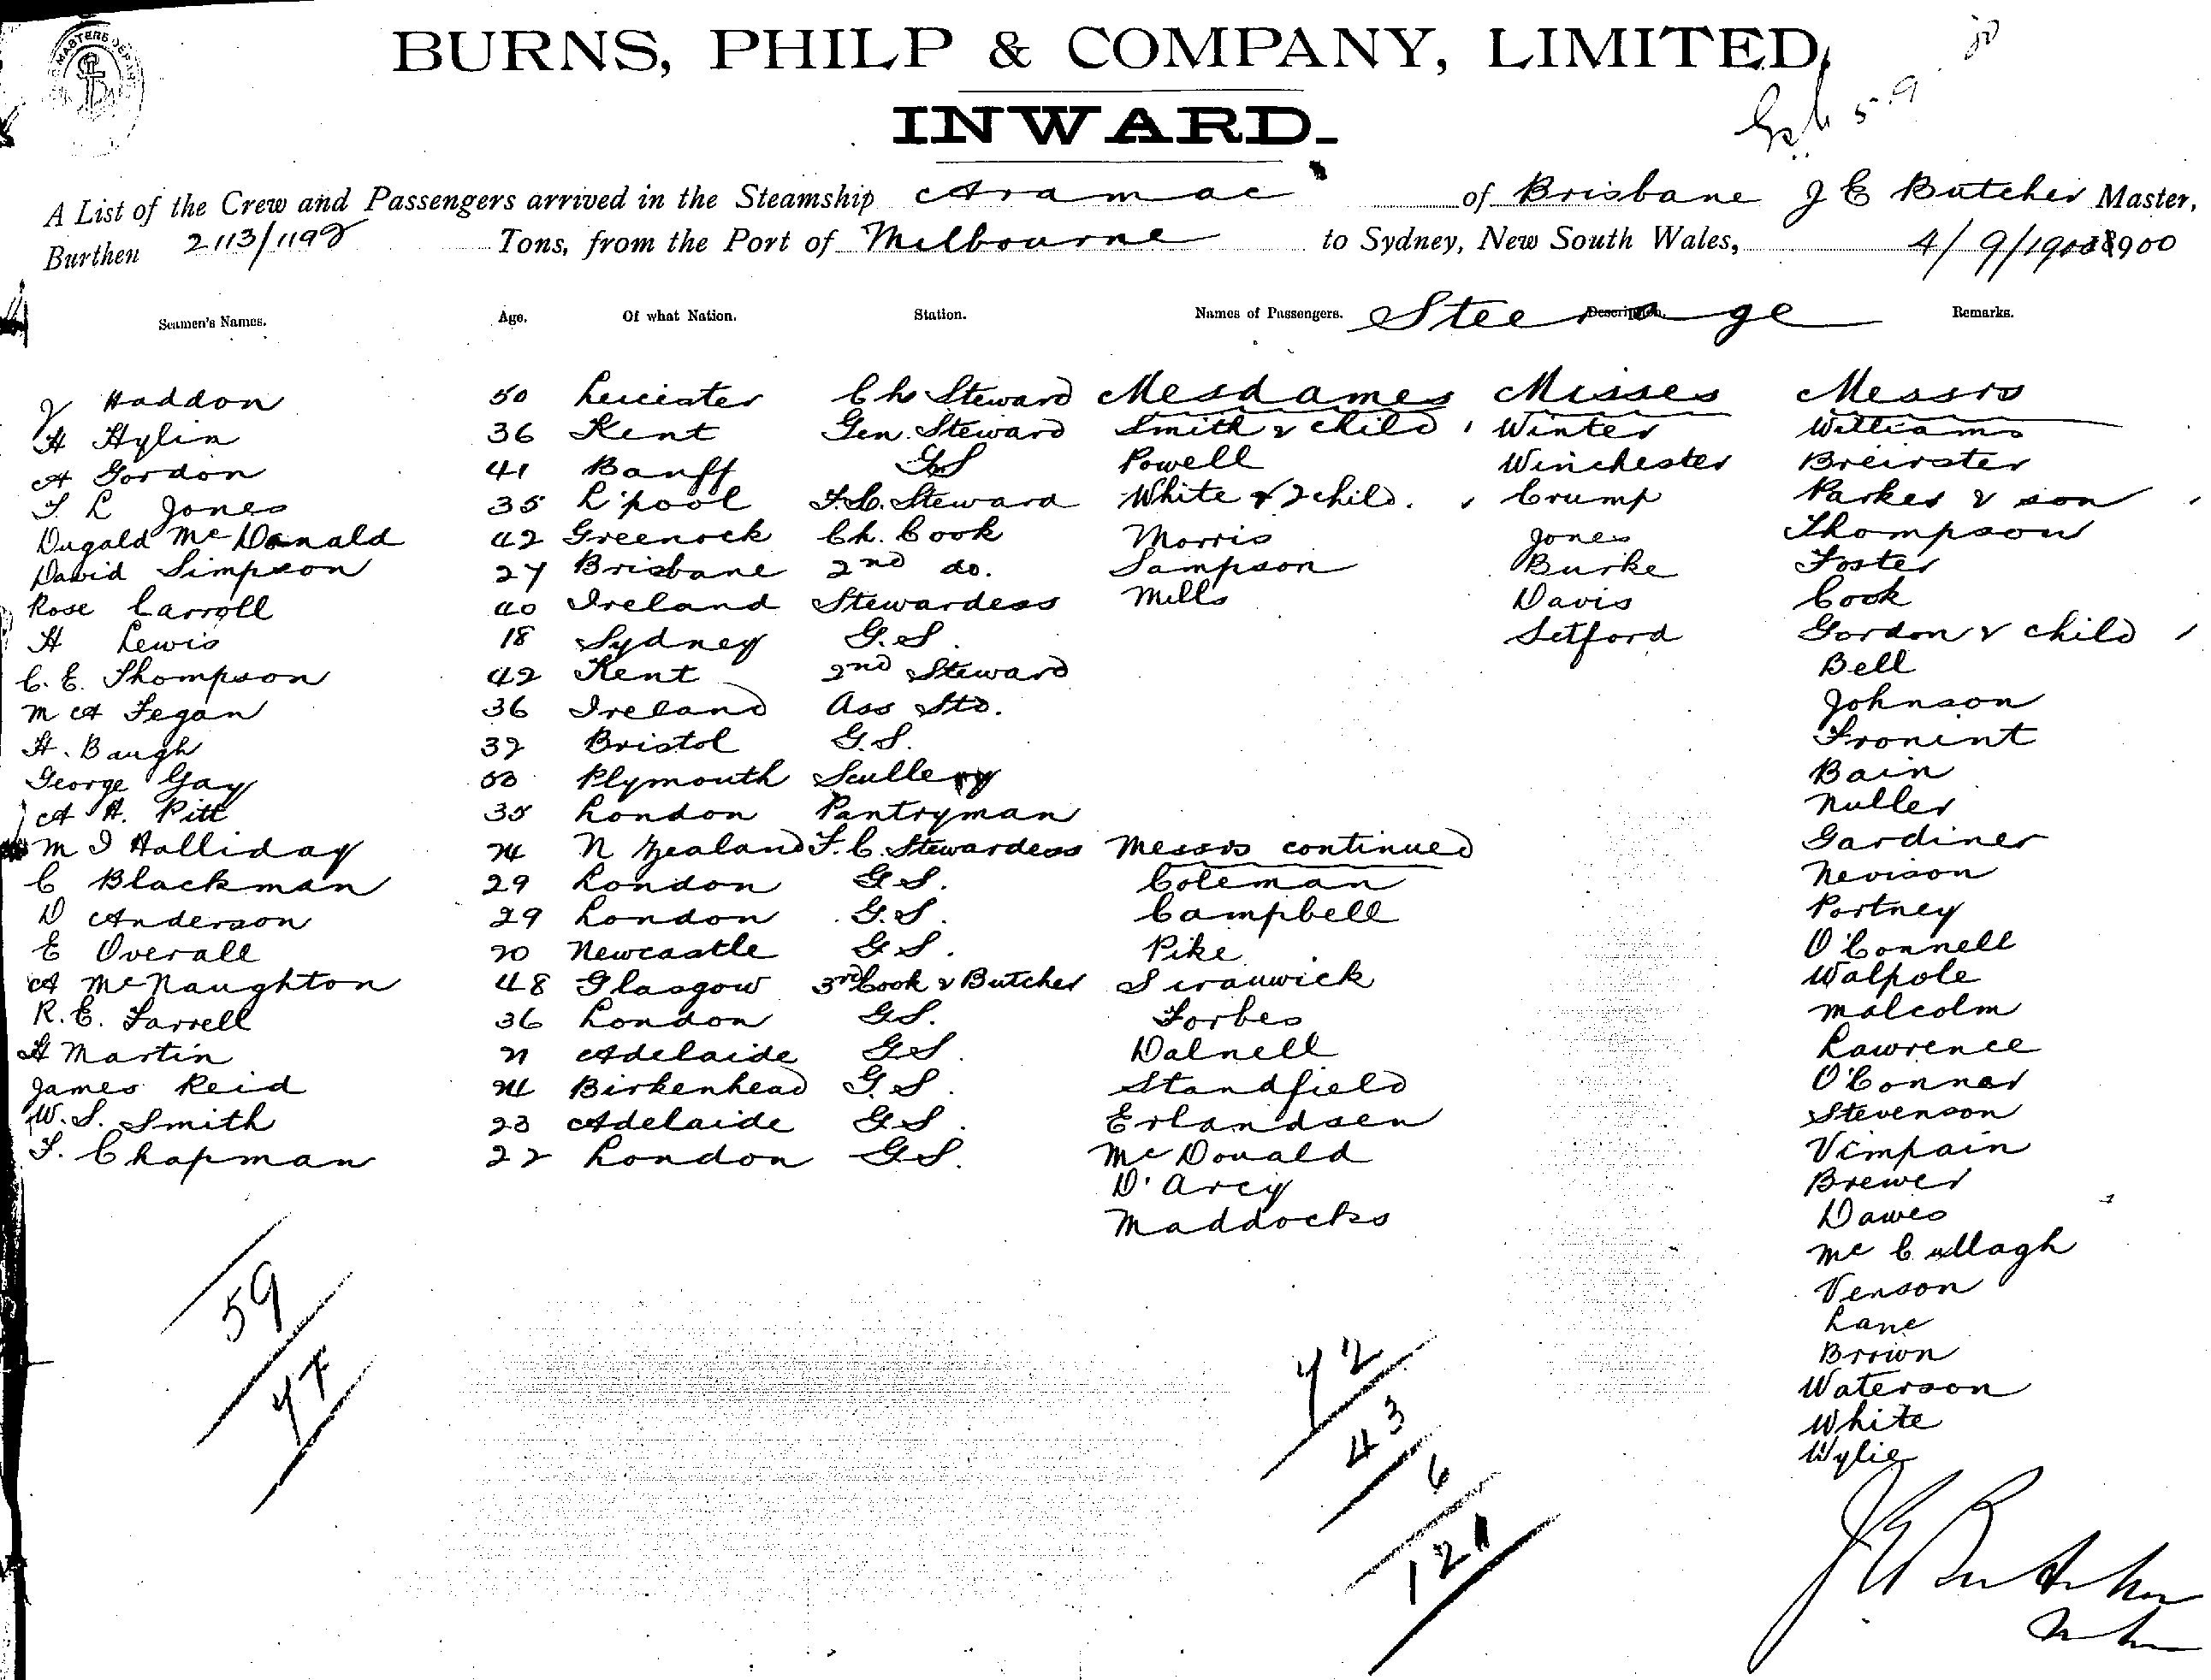 MASTERS DEPART
BURNS, PHILP & COMPANY, LIMITED,
INWARD.
5.9
A List of the Crew and Passengers arrived in the Steamship Aramac of Brisbane J E Butcher Master,
Burthen 2113/1192 Tons, from the Port of Melbourne to Sydney, New South Wales, 4/9/1900
Seamen's Names. Age. Of what Nation. Station. Names of Passengers. Steerage Description. Remarks.
J Haddon 50 Leicester Ch Steward Mesdames Misses Messrs
H Hylin 36 Kent Gen. Steward Smith & child 1 Winter Williams
A Gordon 41 Banff GS Powell Winchester Breirster
F L Jones 35 L'pool F.C. Steward White & 2 child. Crump Parker & son 1
Dugald McDonald 42 Greenock Ch. Cook Morris Jones Thompson
David Simpson 27 Brisbane 2nd do. Sampson Burke Foster
Rose Carroll 40 Ireland Stewardess Mills Davis Cook
H Lewis 18 Sydney G.S. Setford Gordon & child 1
C. E. Thompson 42 Kent 2nd Steward Bell
M A Fegan 36 Ireland Ass Std. Johnson
H. Baugh 32 Bristol G.S. Fronint
George Gay 50 Plymouth Scullery Bain
A H. Pitt 35 London Pantryman Nuller
M I Halliday 24 N Zealand F.C. Stewardess Messrs continued Gardiner
C Blackman 29 London G.S. Coleman Nevison
D Anderson 29 London G.S. Campbell Portney
E Overall 20 Newcastle G.S. Pike O'Connell
A McNaughton 48 Glasgow 3rd Cook & Butcher Walpole
R. E. Farrell 36 London G.S. Forbes Malcolm
H Martin 21 Adelaide G.S. Dalnell Lawrence
James Reid 24 Birkenhead G.S. Standfield O'Conner
W. S. Smith 23 Adelaide G.S. Erlandsen Stevenson
F. Chapman 22 London G.S. McDonald Vimpain
D'Arcy Brewer
Maddocks Dawes
McCullagh
59 Venson
47 Lane
72 Brown
43 Waterson
6 White
121 Wylie
J E Butcher